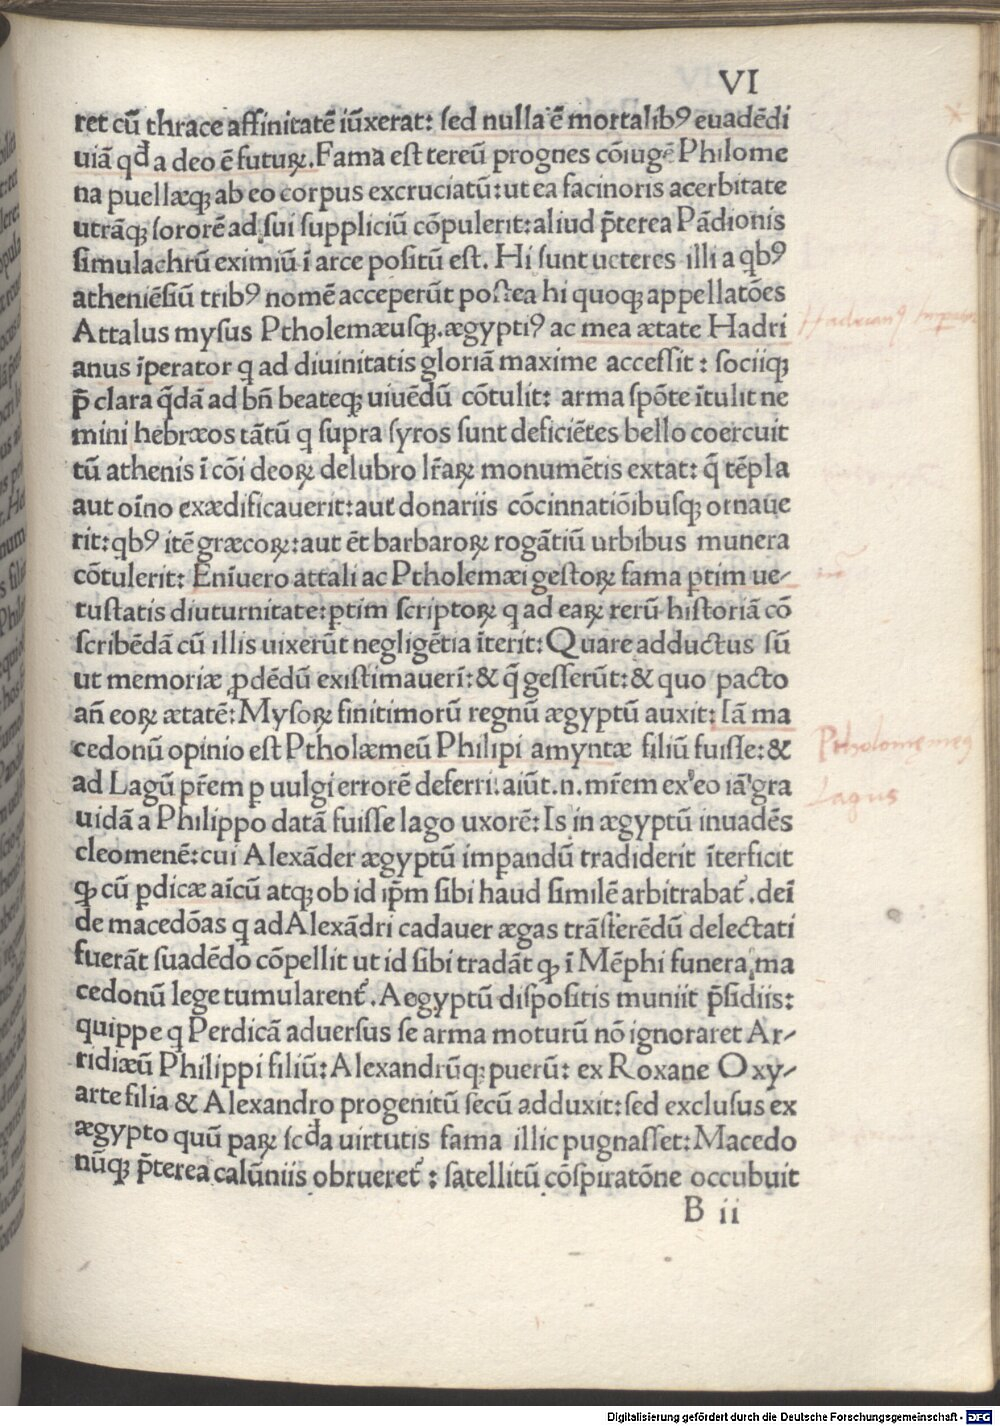 VI
ret cũ thrace affinitatẽ iũxerat: sed nulla ẽ mortalibꝰ euadẽdi
uiã qđ a deo ẽ futuꝝ. Fama est tereũ prognes cõiugẽ Philome
na puellæqꝫ ab eo corpus excruciatũ: ut ea facinoris acerbitate
utrãqꝫ sororẽ ad sui suppliciũ cõpulerit: aliud p̃terea Pãdionis
simulachrũ eximiũ ĩ arce positũ est. Hi sunt ueteres illi a qbꝰ
atheniẽsiũ tribꝰ nomẽ acceperũt postea hi quoqꝫ appellatões
Attalus mysus Ptholemæusqꝫ ægyptiꝰ ac mea ætate Hadri
anus ĩperator q ad diuinitatis gloriã maxime accessit: sociiqꝫ
p̃ clara q̃dã ad bñ beateqꝫ uiuẽdũ cõtulit: arma spõte ĩtulit ne
mini hebræos tãtũ q supra syros sunt deficiẽtes bello coercuit
tũ athenis ĩ cõi deoꝝ delubro lr̃aꝝ monumẽtis extat: q̃ tẽpla
aut oĩno exædificauerit: aut donariis cõcinnatiõibusqꝫ ornaue
rit: qbꝰ itẽ græcoꝝ: aut ẽt barbaroꝝ rogãtiũ urbibus munera
cõtulerit: Enĩuero attali ac Ptholemæi gestoꝝ fama ptim ue-
tustatis diuturnitate: ptim scriptoꝝ q ad eaꝝ rerũ historiã cõ
scribẽdã cũ illis uixerũt negligẽtia ĩterit: Quare adductus sũ
ut memoriæ ꝓdẽdũ existimauerĩ: & q̃ gesserũt: & quo pacto
añ eoꝝ ætatẽ: Mysoꝝ finitimorũ regnũ ægyptũ auxit: Iã ma
cedonũ opinio est Ptholæmeũ Philipi amyntæ filiũ fuisse: &
ad Lagũ pr̃em ꝑ uulgi errorẽ deferri: aiũt .n. mr̃em ex eo iã gra
uidã a Philippo datã fuisse lago uxorẽ: Is in ægyptũ inuadẽs
cleomenẽ: cui Alexãder ægyptũ impandũ tradiderit ĩterficit
qꝫ cũ pdicæ aĩcũ atqꝫ ob id ip̃m sibi haud similẽ arbitrabat̃. deĩ
de macedõas q ad Alexãdri cadauer ægas trãsferẽdũ delectati
fuerãt suadẽdo cõpellit ut id sibi tradãt qꝫ ĩ Mẽphi funera ma
cedonũ lege tumularent̃. Aegyptũ dispositis muniit p̃sidiis:
quippe q Perdicã aduersus se arma moturũ nõ ignoraret Ar-
ridiæũ Philippi filiũ: Alexandrũqꝫ puerũ: ex Roxane Oxy-
arte filia & Alexandro progenitũ secũ adduxit: sed exclusus ex
ægypto quũ paꝝ scđa uirtutis fama illic pugnasset: Macedo
nũqꝫ p̃terea calũniis obrueret̃: satellitũ cõspiratõne occubuit
B ii
Hadrianꝰ Imperator
Ptholomęmeꝰ
Lagus
Digitalisierung gefördert durch die Deutsche Forschungsgemeinschaft - DFG